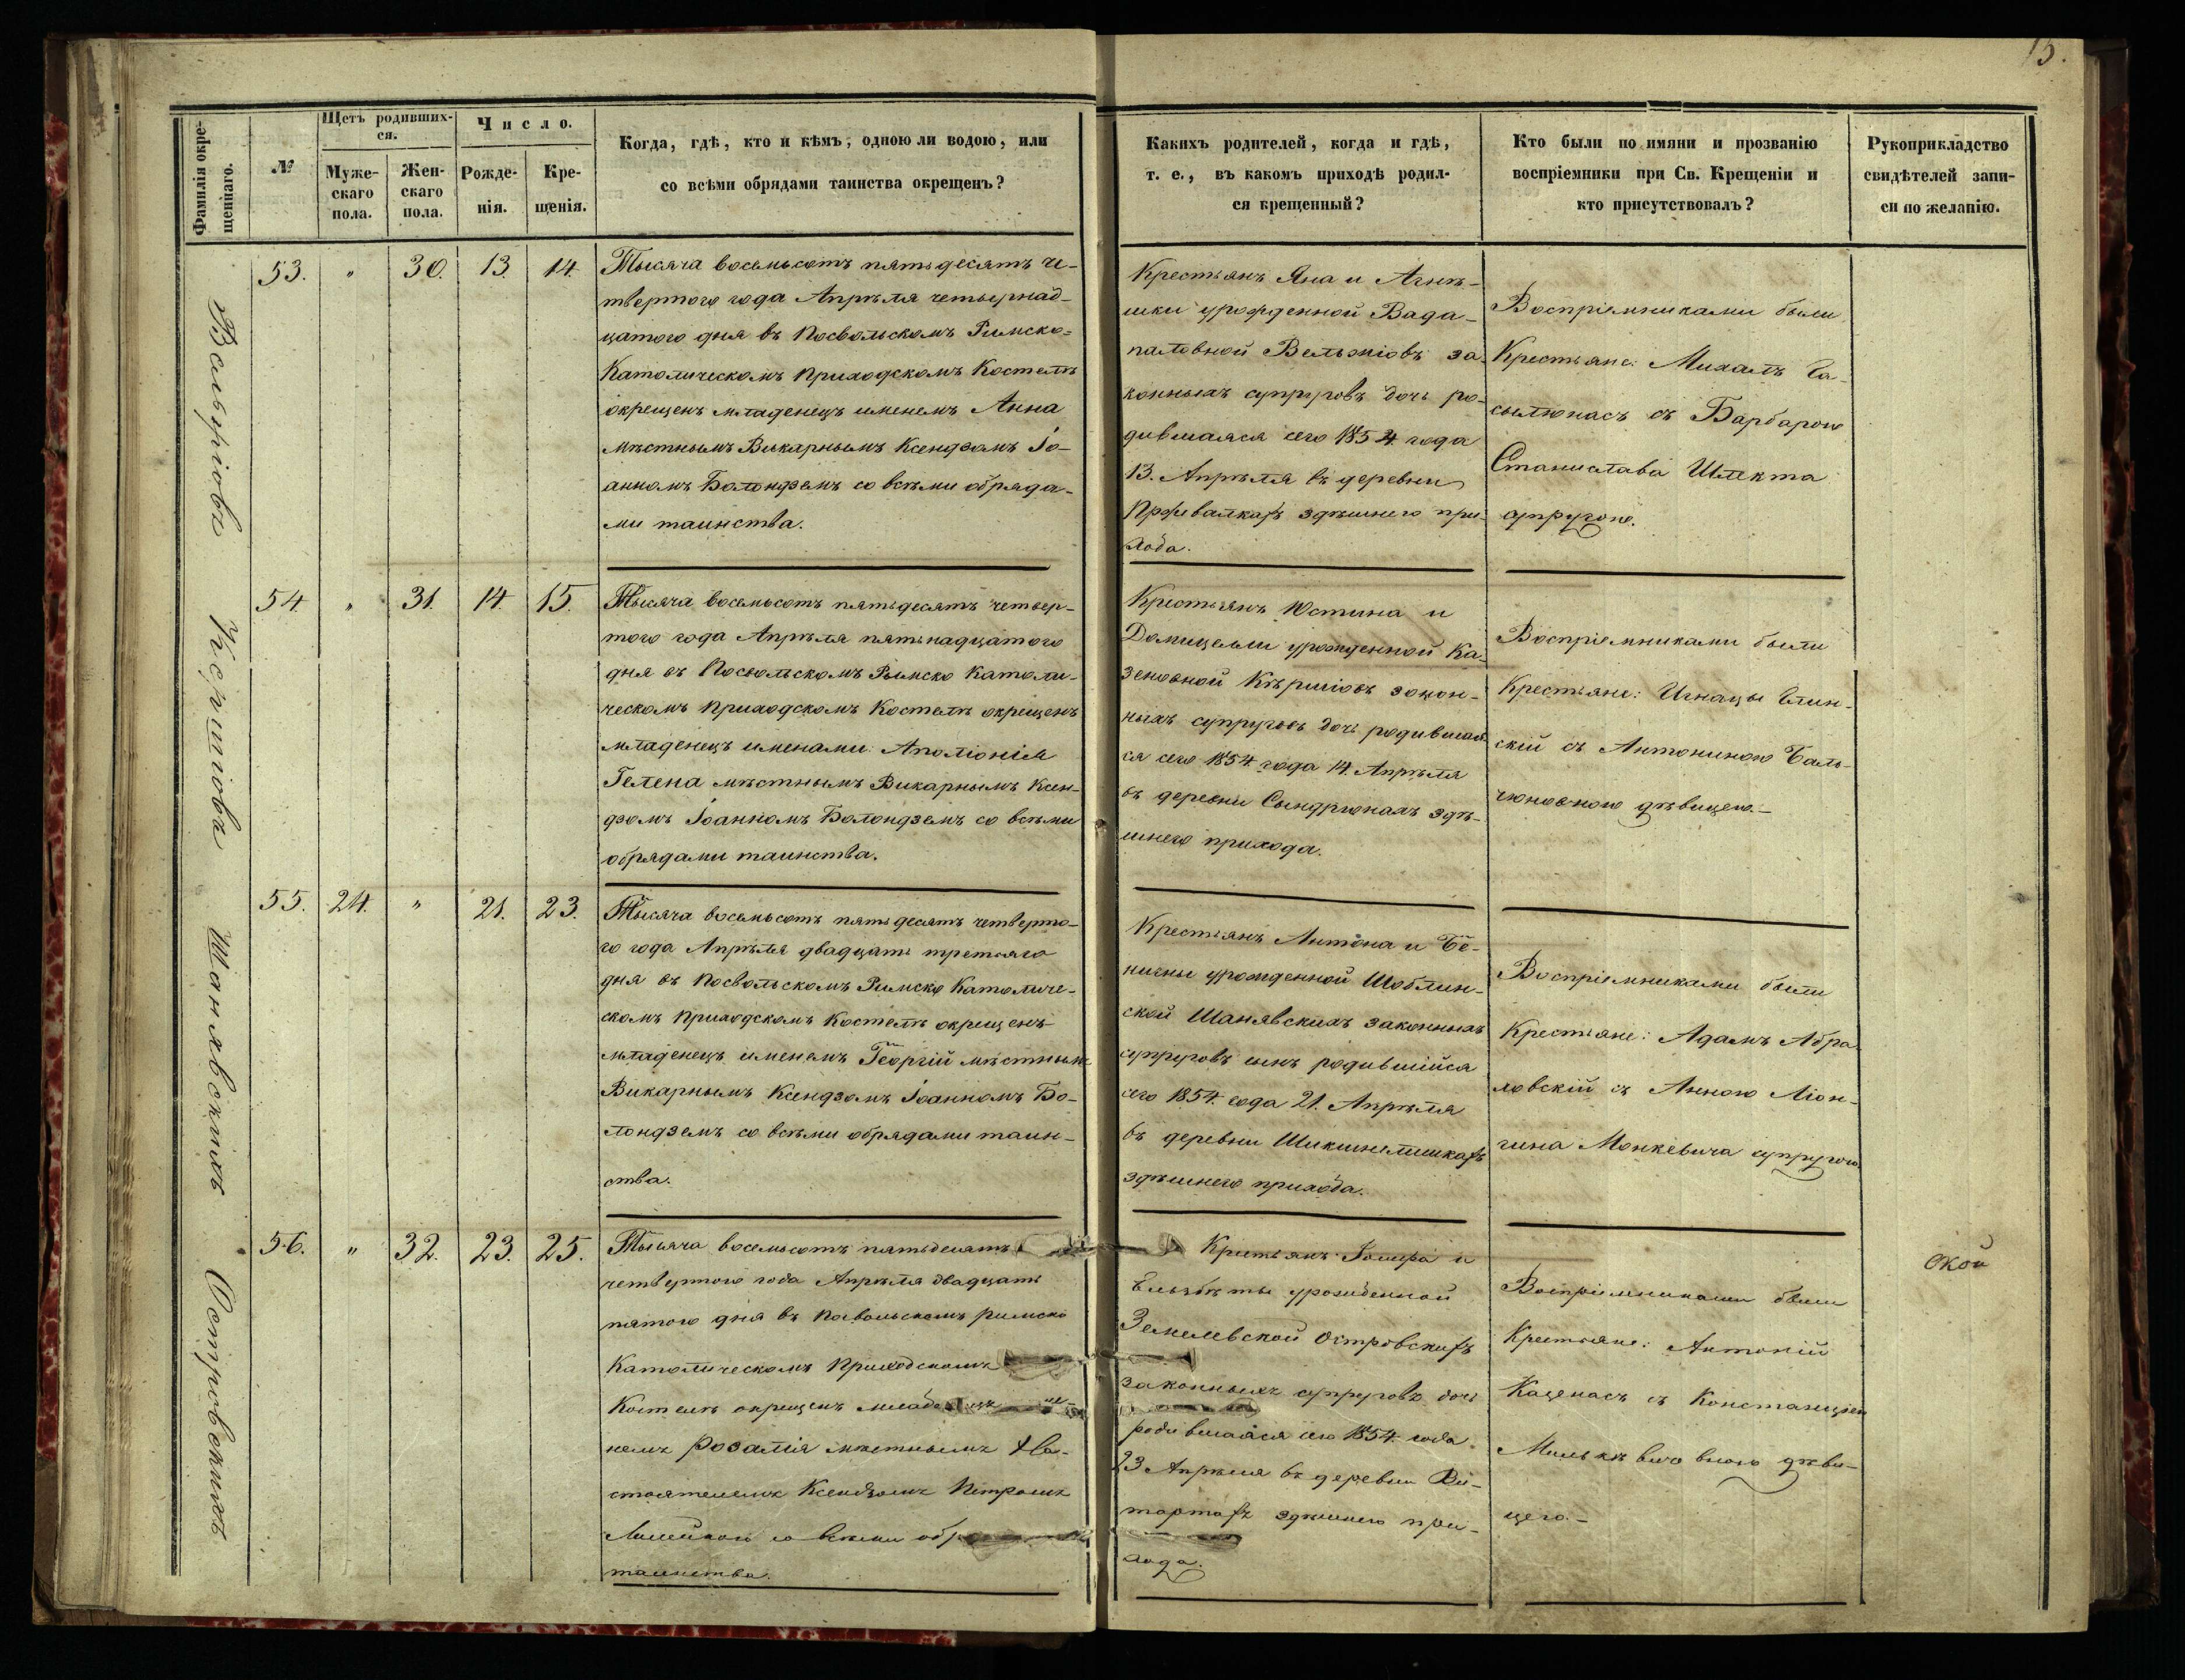 15.
Фамилія окре-
щеннаго.
№
Щетъ родивших-
ся.
Муже-
скаго
пола.
Жен-
скаго
пола.
Число.
Рожде-
нія.
Кре-
щенія.
Когда, гдѣ, кто и кѣмъ, одною ли водою, или
со всѣми обрядами таинства окрещенъ?
Какихъ родителей, когда и гдѣ,
т. е., въ какомъ приходѣ родил-
ся крещенный?
Кто были по имяни и прозванію
воспріемники при Св. Крещеніи и
кто присутствовалъ?
Рукоприкладство
свидѣтелей запи-
си по желанію.
53. " 30. 13. 14.
Тысяча восемьсотъ пятьдесятъ че-
твертого года Апрѣля четырнад-
цатого дня въ Посвольскомъ Римско-
Католическомъ Приходскомъ Костелѣ
окрещенъ младенецъ именемъ Анна
мѣстнымъ Викарнымъ Ксендзомъ Іо-
анномъ Болондземъ со всѣми обряда-
ми таинства.
Крестьянъ Яна и Агнѣ-
шки урожденной Вада-
паловной
законныхъ супруговъ дочь ро-
дившаяся сего 1854 года
13. Апрѣля въ деревни
здѣшнего при-
хода.
Воспріемниками были
Крестьяне: Михалъ
съ Барбарою
Станислава Шлекта
супругою.
54. " 31. 14. 15.
Тысяча восемьсотъ пятьдесятъ четвер-
того года Апрѣля пятьнадцатого
дня въ Посвольскомъ Римско Католи-
ческомъ Приходскомъ Костелѣ окрещенъ
младенецъ именами: Аполіонія
Гелена мѣстнымъ Викарнымъ Ксен-
дзомъ Іоанномъ Болондземъ со всѣми
обрядами таинства.
Крестьянъ Юстина и
Домицели урожденной Ка-
зеновной Кѣршіовъ закон-
ныхъ супруговъ дочь родившая
ся сего 1854 года 14. Апрѣля
въ деревни Сындрюнахъ здѣ-
шнего прихода.
Воспріемниками были
Крестьяне: Игнацы
скій съ Антониною Баль-
чюновною дѣвицею.
55. 24. " 21. 23.
Шанявскихъ
Тысяча восемьсотъ пятьдесятъ четверто-
го года Апрѣля двадцать третьяго
дня въ Посвольскомъ Римско Католиче-
скомъ Приходскомъ Костелѣ окрещенъ
младенецъ именемъ Георгій мѣстнымъ
Викарнымъ Ксендзомъ Іоанномъ Бо-
лондземъ со всѣми обрядами таин-
ства.
Крестьянъ Антона и Бе-
нигны урожденной Шоблин-
ской Шанявскихъ законныхъ
супруговъ сынъ родившійся
сего 1854. года 21. Апрѣля
въ деревни Шикшнелишкахъ
здѣшнего прихода.
Воспріемниками были
Крестьяне: Адамъ Абра-
мовскій съ АнноюЛіон-
гина Монкевича супругою
56. " 32. 23. 25.
Островскихъ
Тысяча восемьсотъ пятьдесятъ
четвертого года Апрѣля двадцать
пятого дня въ Посвольскомъ Римско
Католическомъ Приходскомъ
Костелѣ окрещенъ
Розалія мѣстнымъ На-
стоятелемъ Ксендзомъ Петромъ
со всѣми
таинства.
Крестьянъ Іосифа и
Ельзбѣты урожденной
Земелевской Островскихъ
законныхъ супруговъ дочь
родившаяся сего 1854. года
23 Апрѣля въ деревни Ви-
тартахъ здѣшнего при-
хода.
Воспріемниками были
Крестьяне: Антоній
Каценасъ съ Констанціею
дѣви-
цею.
ской